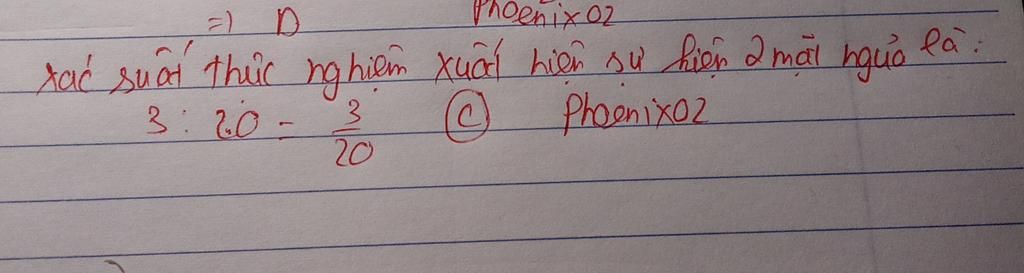 =) D Phoenix02
xác suất thực nghiệm xuất hiện sự kiện 2 mặt ngửa là:
3 : 20 = 3/20 C Phoenix02